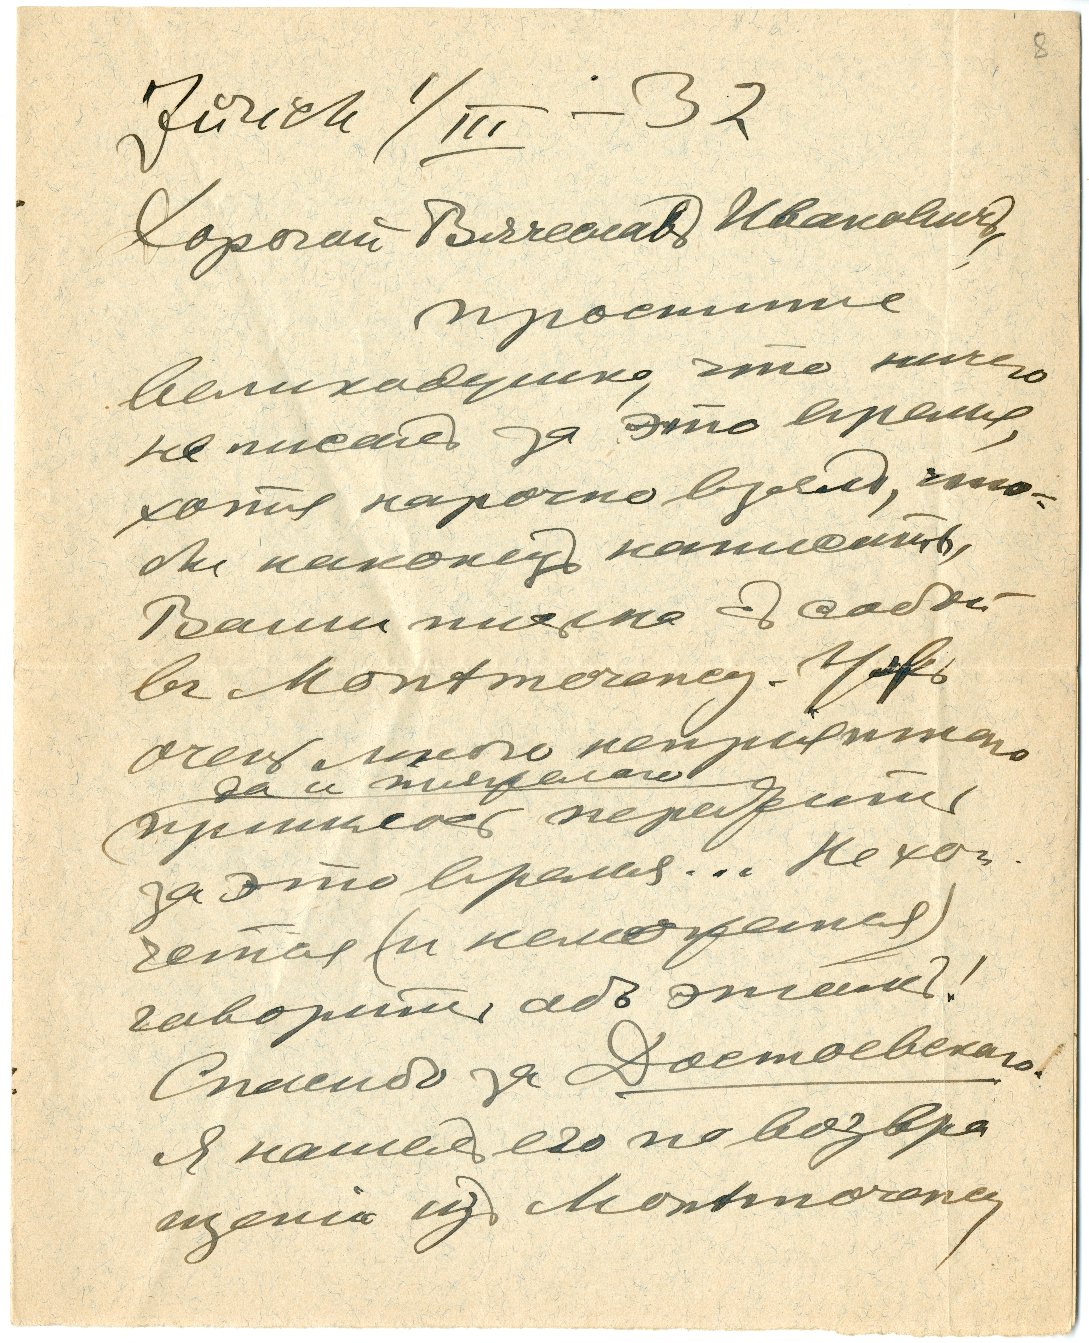 8
Zürich 1/III – 32
Дорогой Вячеславъ Ивановичъ,
простите
великодушно, что ничего
не писалъ за это время,
хотя нарочно взялъ, что-
бы наконецъ написать,
Ваши письма съ собой
въ Montmorency.
очень много непріятнаго
да и тяжелаго
пришлось пережить
за это время... Не хо-
чется (и не можется)
говорить объ этомъ!
Спасибо за Достоевскаго.
Я нашелъ его по возвра
щеніи изъ Montmorency